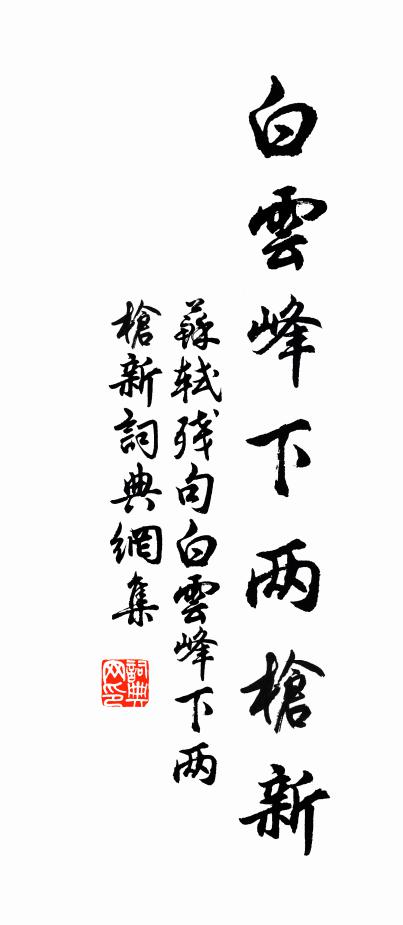 白雲峰下两槍新
蘇軾残句白雲峰下两
槍新詞典網集
詞典
网印